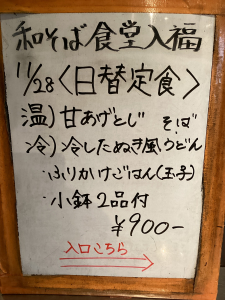 和そば食堂入福
11/28〈日替定食〉
温)甘あげとじ そば
冷)冷したぬき風うどん
・ふりかけごはん(玉子)
・小鉢2品付
¥900-
入口こちら